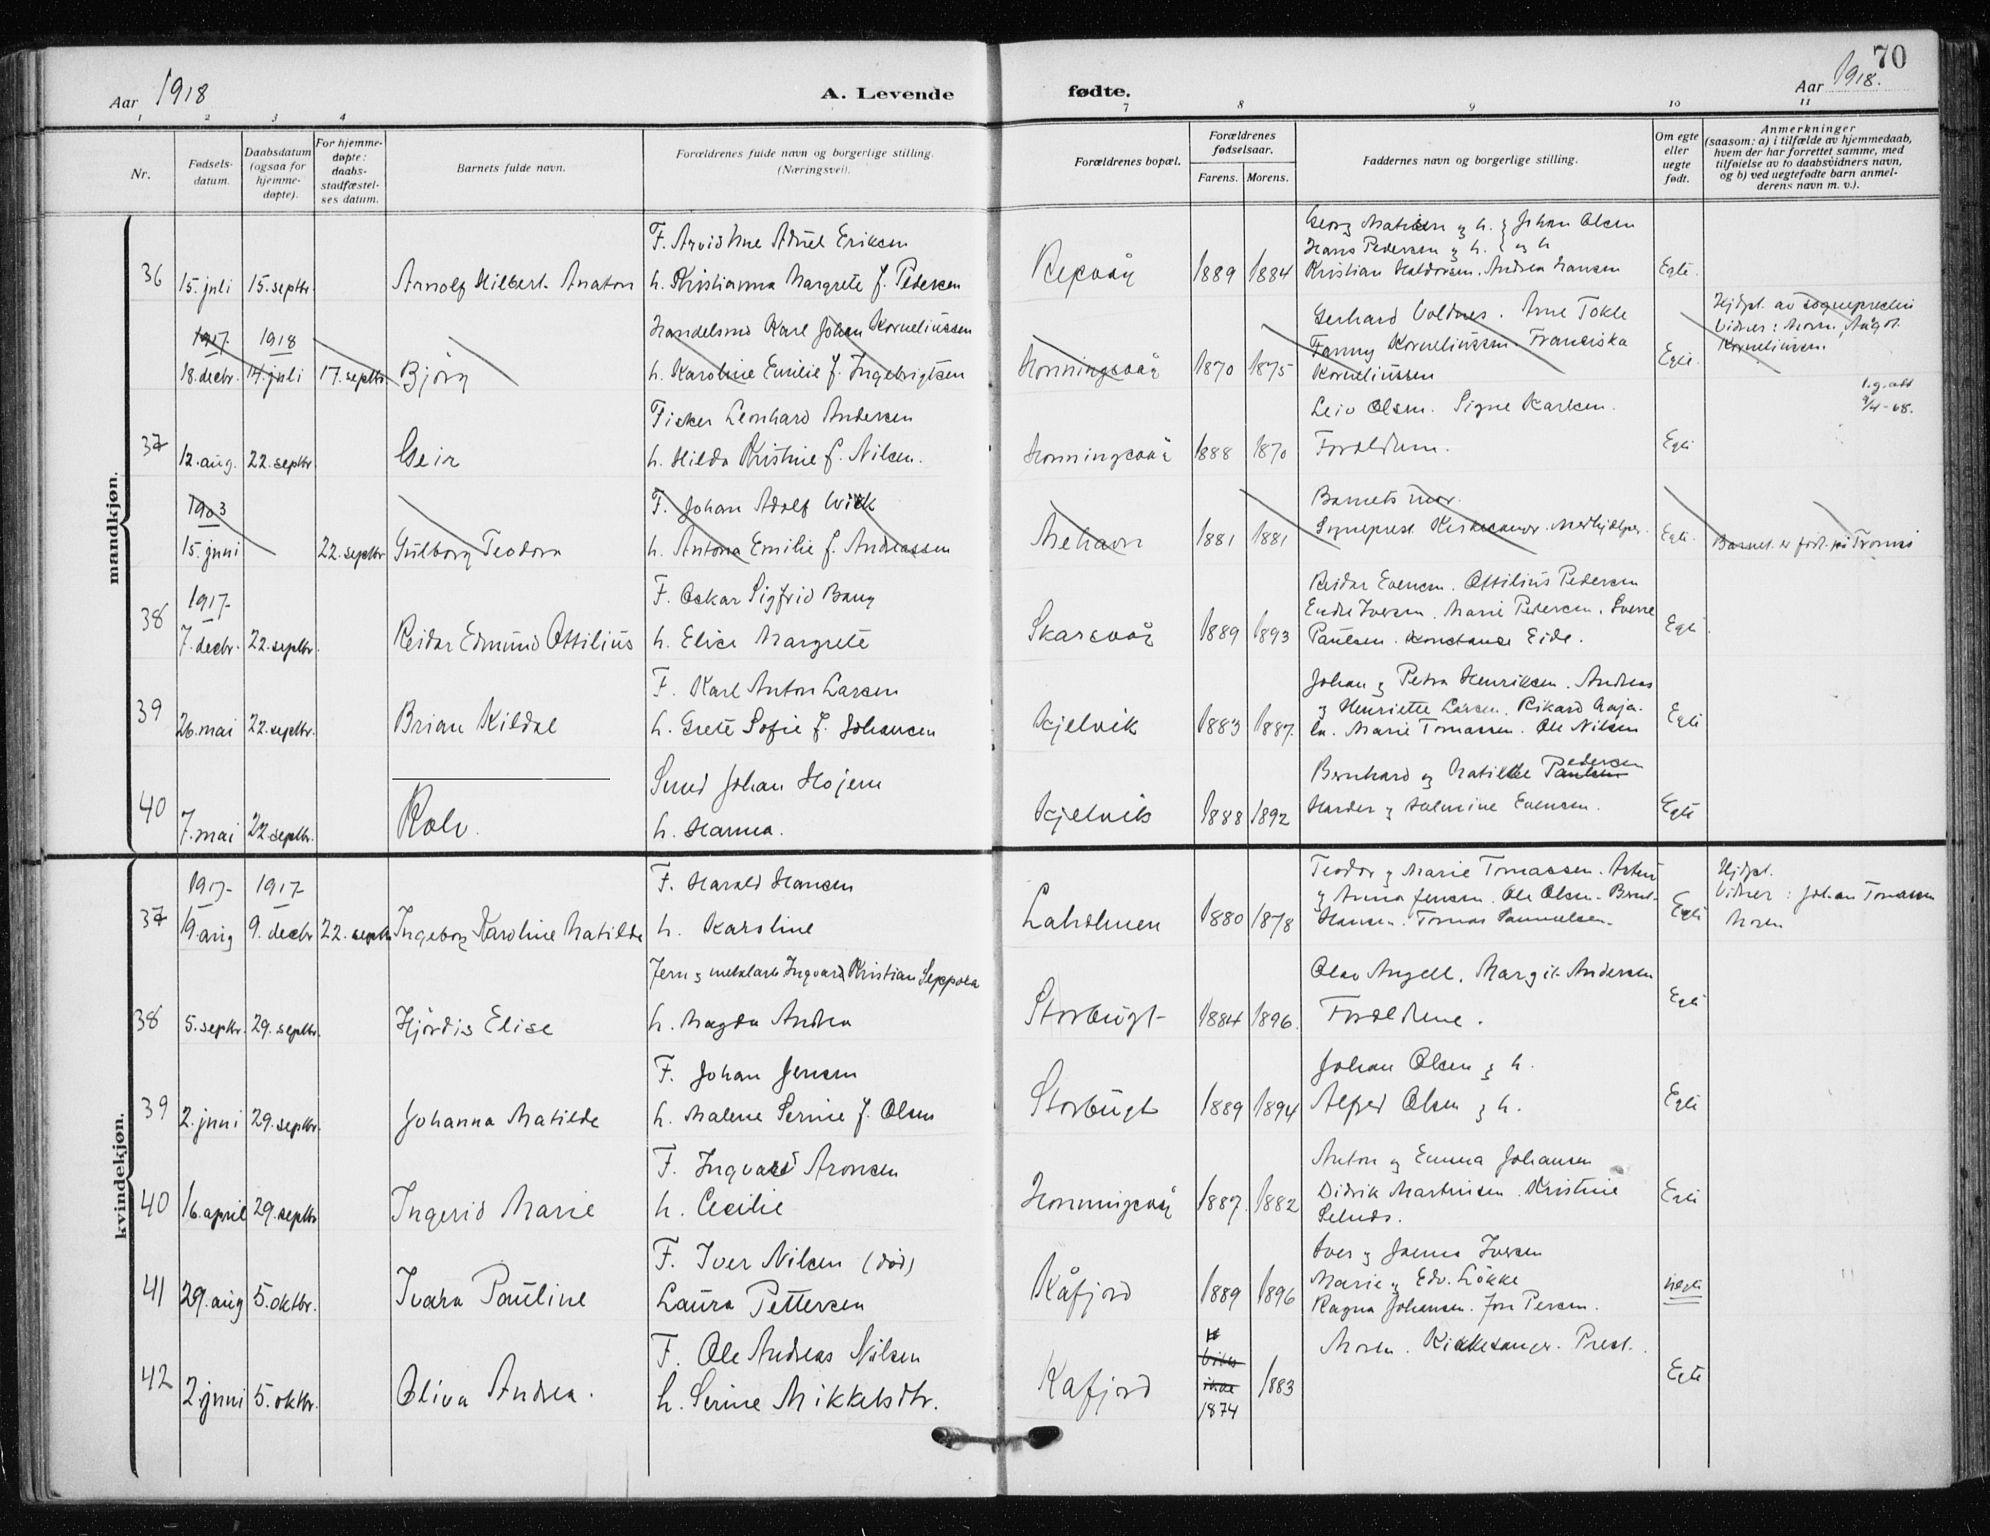 70
Aar 1918
A. Levende
fødte.
Aar 1918.
1 2 3 4 7 8 9 10 11
Nr.
Fødsels-
datum.
Daabsdatum
(ogsaa for
hjemme-
døpte).
For hjemme-
døpte:
daabs-
stadfæstel-
ses datum.
Barnets fulde navn.
Forældrenes fulde navn og borgerlige stilling.
(Næringsvei).
Forældrenes bopæl.
Forældrenes
fødselsaar.
Farens. Morens.
Faddernes navn og borgerlige stilling.
Om egte
eller
uegte
født.
Anmerkninger
(saasom: a) i tilfælde av hjemmedaab,
hvem der har forrettet samme, med
tilføielse av to daabsvidners navn,
og b) ved uegtefødte barn anmel-
derens navn m. v.).
mandkjøn.
36
15. juli
15. septbr.
Arnolf Hilbert Anaton
F. Arvid Adnel Eriksen
h. Kristianna Margrete f. Pedersen
Repvåg
1889
1884
Georg Matisen og h. Johan Olsen
Hans Pedersen og h. og h
Kristian Haldorsen. Andrea Hansen
Egte.
1917
18. decbr.
1918
14. juli
17. septbr.
Bjørg
Handelsmd Karl Johan Korneliussen
h. Karoline Emilie f. Ingebrigtsen
Honningsvåg
1870
1875
Gerhard Voldnes. Arne Tokle
Fanny Korneliussen. Franciska
Korneliussen
Egte.
Hjdpt. av sognepresten
Vidner: Moren, August
Korneliussen
37
12. aug.
22. septbr.
Geir
Fisker Leonhard Andersen
h. Hilda Kristine f. Nilsen.
Honningsvåg
1888
1870
Leiv Olsen. Signe Karlsen.
Forældrene.
Egte
1903
15. juni
22. septbr
Gulborg Teodora
F. Johan Adolf Wick
h. Antona Emilie f. Andreassen
Mehavn
1881
1881
Barnets mor.
Sogneprest. Kirkesanger. Medhjelper.
Egte.
Barnet er født på Tromsø
38
1917
7. decbr.
22. septbr.
Reidar Edmund Ottilius
F. Oskar Sigfrid Bang
h. Elise Margrete
Skarsvåg
1889
1893
Reidar Evensen. Ottilius Pedersen
Endre Iversen. Marie Pedersen. Sverre
Paulsen. Konstanse Eide.
Egte
39
26. mai
22. septbr.
Brian Kildal
F. Karl Anton Larsen
h. Grete Sofie f. Johansen
Kjelvik
1883
1887.
Johan og Petra Henriksen. Andreas
og Henriette Larsen. Rikard
Marie Tomassen. Ole Nilsen
Egte
40
7. mai
22. septbr.
Rolv.
Smed Johan Hojem
h. Hanna.
Kjelvik
1888
1892
Bernhard og Matilde Pedersen
Harder og Halmine Evensen.
Egte
kvindekjøn.
37
1917
19. aug
1917
9. decbr
22. septbr
Ingeborg Karoline Matilde
F. Harald Hansen
h. Karoline
Laholmen
1880
1878
Teodor og Marie Tomassen. Artur
og Anna Jensen. Ole Olsen. Bernt
Hansen. Tomas Samuelsen.
Egte
Hjdpt.
Vidner: Johan Tomassen
Moren
38
5. septbr.
29. septbr.
Hjördis Elise
Jern og metalarb Ingvard Kristian Seppola
h. Magda Andrea
Storbugt
1884
1896.
Olav Angell. Margit Andersen
Forældrene.
Egte
39
2. juni
29. septbr.
Johanna Matilde
F. Johan Jensen
h. Malene Serine f. Olsen
Storbugt
1889
1894
Johan Olsen og h.
Alfred Olsen og h.
Egte
40
16. april
29. septbr
Ingerid Marie
F. Ingvard Aronsen
h. Cecilie
Honningsvåg
1887.
1882
Anton og Emma Johansen
Didrik Martinsen. Kristine
Egte
41
29. aug
5. oktbr.
Ivara Pauline
F. Iver Nilsen (død)
Laura Pettersen
Kåfjord
1889
1896
Iver og Joanna Iversen
Marie og Edv. Løkke
Ragna Johansen. Jon Persen.
uegte
42
2. juni
5. oktbr.
Oliva Andrea.
F. Ole Andreas Nilsen
h. Serine Mikkelsdtr.
Kafjord
1874
1883
Moren. Kirkesanger. Prest.
Egte